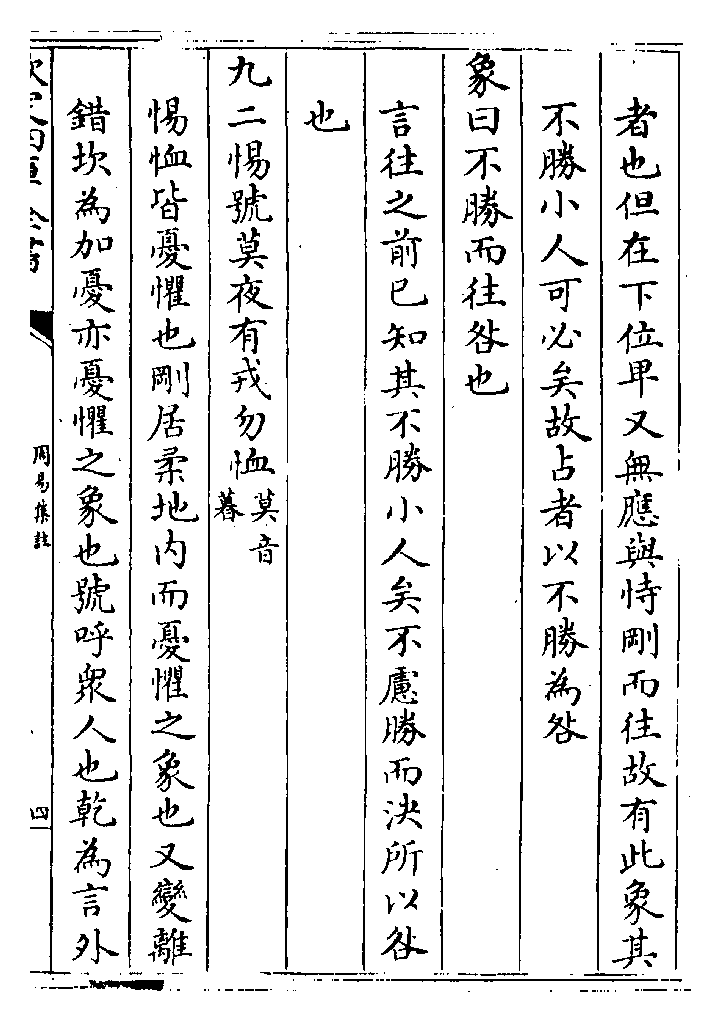 者也但在下位卑又無應與恃剛而往故有此象其
不勝小人可必矣故占者以不勝為咎
象曰不勝而往咎也
言往之前已知其不勝小人矣不慮勝而決所以咎
也
九二惕號莫夜有戎勿恤莫音暮
惕恤皆憂懼也剛居柔地内而憂懼之象也又變離
錯坎為加憂亦憂懼之象也號呼衆人也乾為言外
周易集註
四